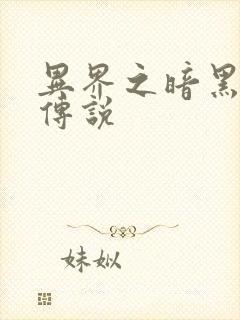 異界之暗黑
傳說
妹姒